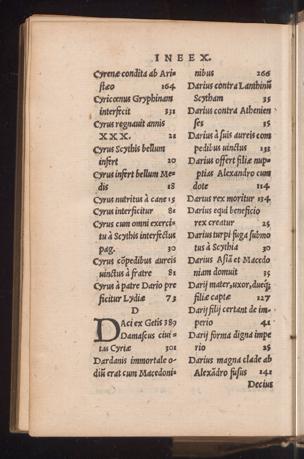 INEEX.
Cyrenæ condita ab Ari-
stæo 164
Cyricœnus Gryphinam
interfecit 331
Cyrus regnauit annis
XXX. 21
Cyrus Scythis bellum
infert 20
Cyrus infert bellum Me-
dis 18
Cyrus nutritus à cane 15
Cyrus interficitur 81
Cyrus cum omni exerci-
tu à Scythis interfectus
pag. 30
Cyrus cõpedibus aureis
uinctus à fratre 81
Cyrus à patre Dario præ
ficitur Lydiæ 73
D
DAci ex Getis 389
Damascus ciui-
tas Cyriæ 301
Dardanis immortale o-
diũ erat cum Macedoni-
nibus 266
Darius contra Lanthinũ
Scytham 35
Darius contra Athenien
ses 35
Darius à suis aureis com
pedibus uinctus 133
Darius offert filiæ nup-
ptias Alexandro cum
dote 114
Darius rex moritur 134
Darius equi beneficio
rex creatur 25
Darius turpi fuga submo
tus à Scythia 30
Darius Asiã et Macedo
niam domuit 35
Darij mater, uxor, dueq;
filiæ captæ 127
Darij filij certant de im-
perio 41
Darij forma digna impe
rio 25
Darius magna clade ab
Alexãdro fusus 141
Decius